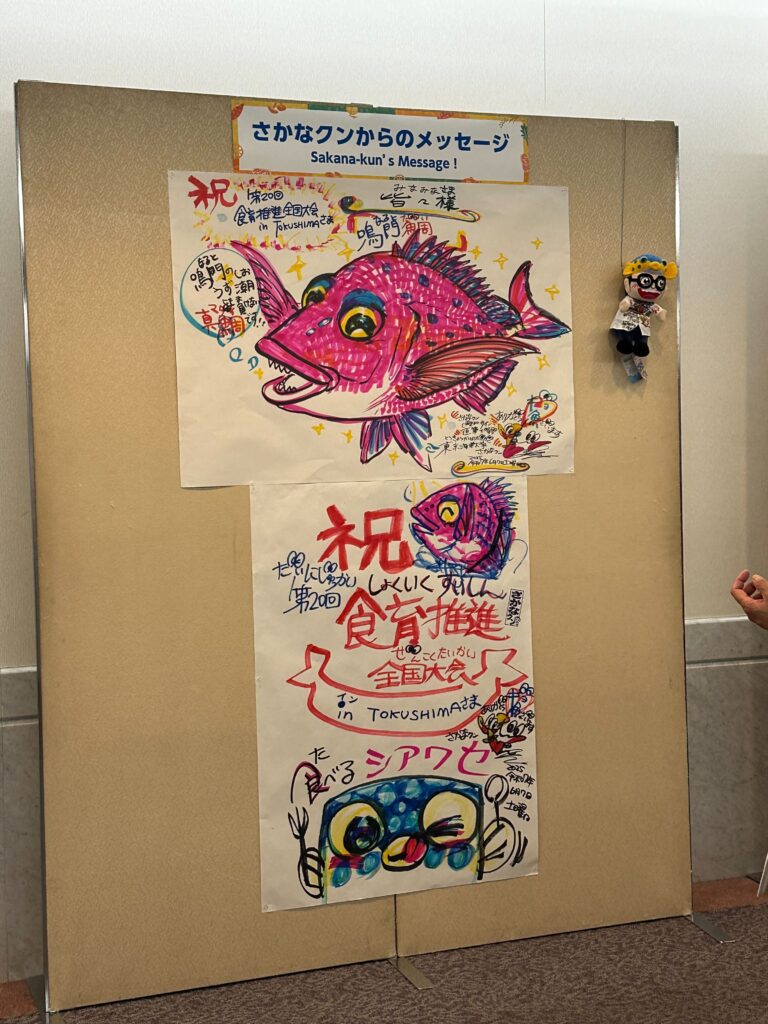 さかなクンからのメッセージ
Sakana-kun's Message !
祝 第20回
食育推進全国大会
in TOKUSHIMAさま
みなみなさま
皆々様
なると
鳴門鯛
なると
鳴門の
うずしお
潮
真鯛
です!!
さかなクン
祝
だいにじゅっかい
第20回
しょくいく すいしん
食育推進
さかなクン
ぜんこくたいかい
全国大会
イン
in TOKUSHIMAさま
さかなクン
た
食べる シアワセ
2025
令和7年
6月7日
土曜日